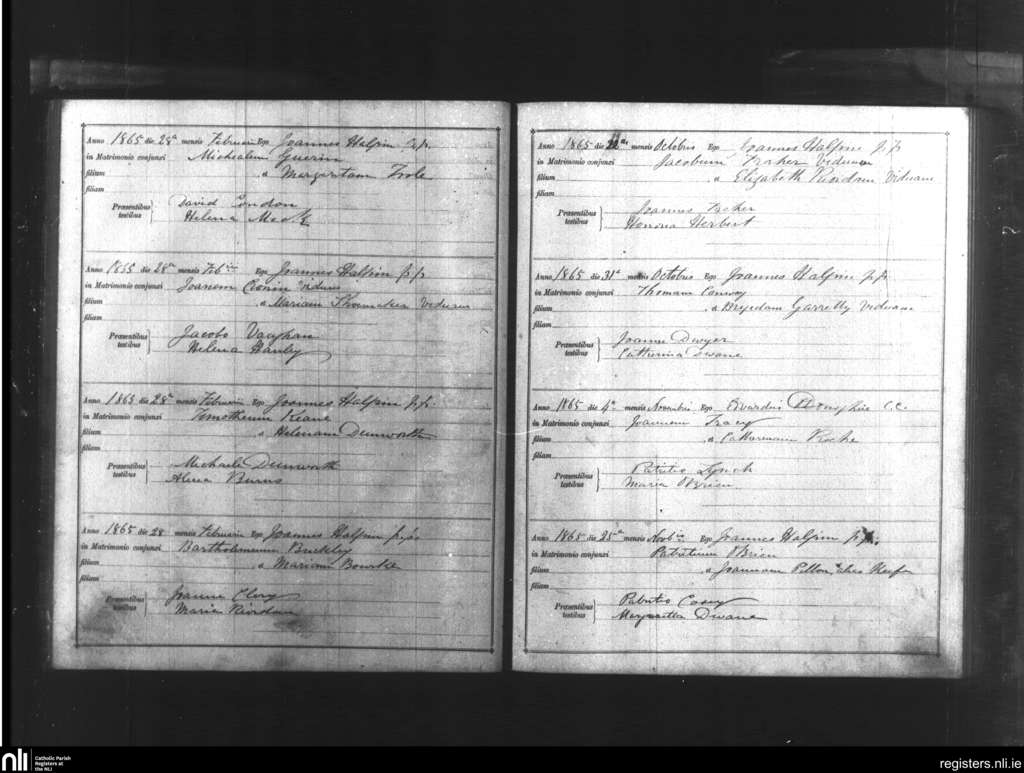 Anno 1865 die 28a mensis Februarii Ego Joannes Halpin p.p.
in Matrimonio conjunxi Michaelem Guerin
filium
a Margaritam Toole
filiam
Præsentibus testibus David Condon
Helena Meck
Anno 1865 die 28a mensis Feb Ego Joannes Halpin p.p.
in Matrimonio conjunxi Joanem Cronin viduus
filium
a Mariam Viduam
filiam
Præsentibus testibus Jacobo Vaughan
Helena Hanley
Anno 1865 die 28a mensis Februarii Ego Joannes Halpin p.p.
in Matrimonio conjunxi Timotheum Keane
filium
a Helenam Dunworth
filiam
Præsentibus testibus Michaele Dunworth
Burns
Anno 1865 die 28 mensis Februarii Ego Joannes Halpin p.p.
in Matrimonio conjunxi Bartholomeum Buckley
filium
a Mariam Bourke
filiam
Præsentibus testibus Joanne Clery
Maria Riordan
Anno 1865 die mensis Octobris Ego Joannes Halpin p.p.
in Matrimonio conjunxi Jacobum Viduum
filium
a Elizabeth Riordan Viduam
filiam
Præsentibus testibus Joannes
Honora Herbert
Anno 1865 die 31a mensis Octobris Ego Joannes Halpin p.p.
in Matrimonio conjunxi Thomam Conway
filium
a Brigidam Garretty Viduam
filiam
Præsentibus testibus Joanne Dwyer
Catherina Dwane
Anno 1865 die 4a mensis Novembris Ego C.C.
in Matrimonio conjunxi Joannem Tracy
filium
a Catharinam Roche
filiam
Præsentibus testibus Patritio Lynch
Maria OBrien
Anno 1865 die 25a mensis Ego Joannes Halpin p.p.
in Matrimonio conjunxi Patritium OBrien
filium
a Joannam alias
filiam
Præsentibus testibus Patritio Casey
Margaritta Dwane
nli
Catholic Parish
Registers at
the NLI
registers.nli.ie